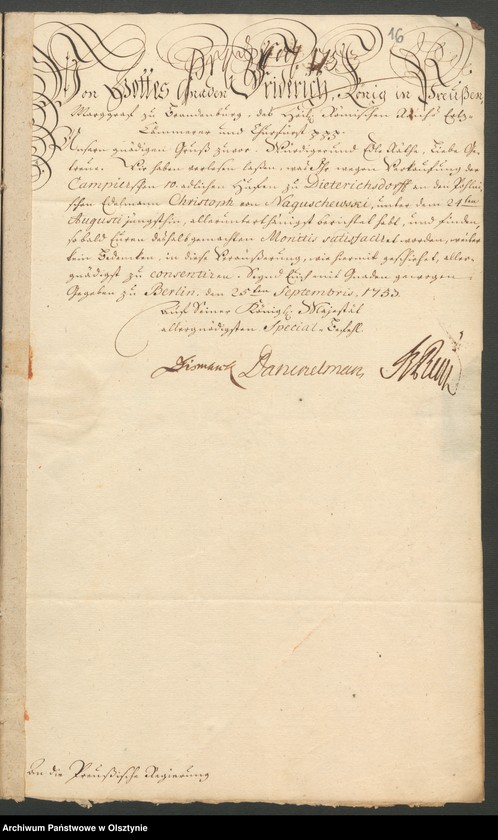 16
Von Gottes Gnaden Friderich, König in Preußen,
Marggraf zu Brandenburg, des Heil. Römischen Reichs Ertz-
Cämmerer und Churfürst
Unsern gnädigen Gruß zuvor. Würdige und Edle Räthe, Liebe Ge-
treue. Wir haben verlesen laßen, was Ihr wegen Verkaufung der
Campien 10. adlichen Hufen zu Dieterichsdorff an den Pohlni-
schen Edelmann Christoph von Naguschewski, unter dem 24ten
Augusti jüngsthin, allerunterthänigst berichtet habt, und finden,
sobald Euren deshalb gemachten Monitis satisfaciret worden, weiter
kein Bedenken, in diese Veräußerung, wie hiemit geschiehet, aller-
gnädigst zu consentiren. Seynd Euch mit Gnaden gewogen.
Gegeben zu Berlin, den 25ten Septembris, 1753.
Auf Seiner Königl. Majestät
allergnädigsten Special-Befehl.
Bismarck Danckelman
An die Preußische Regierung
Archiwum Państwowe w Olsztynie